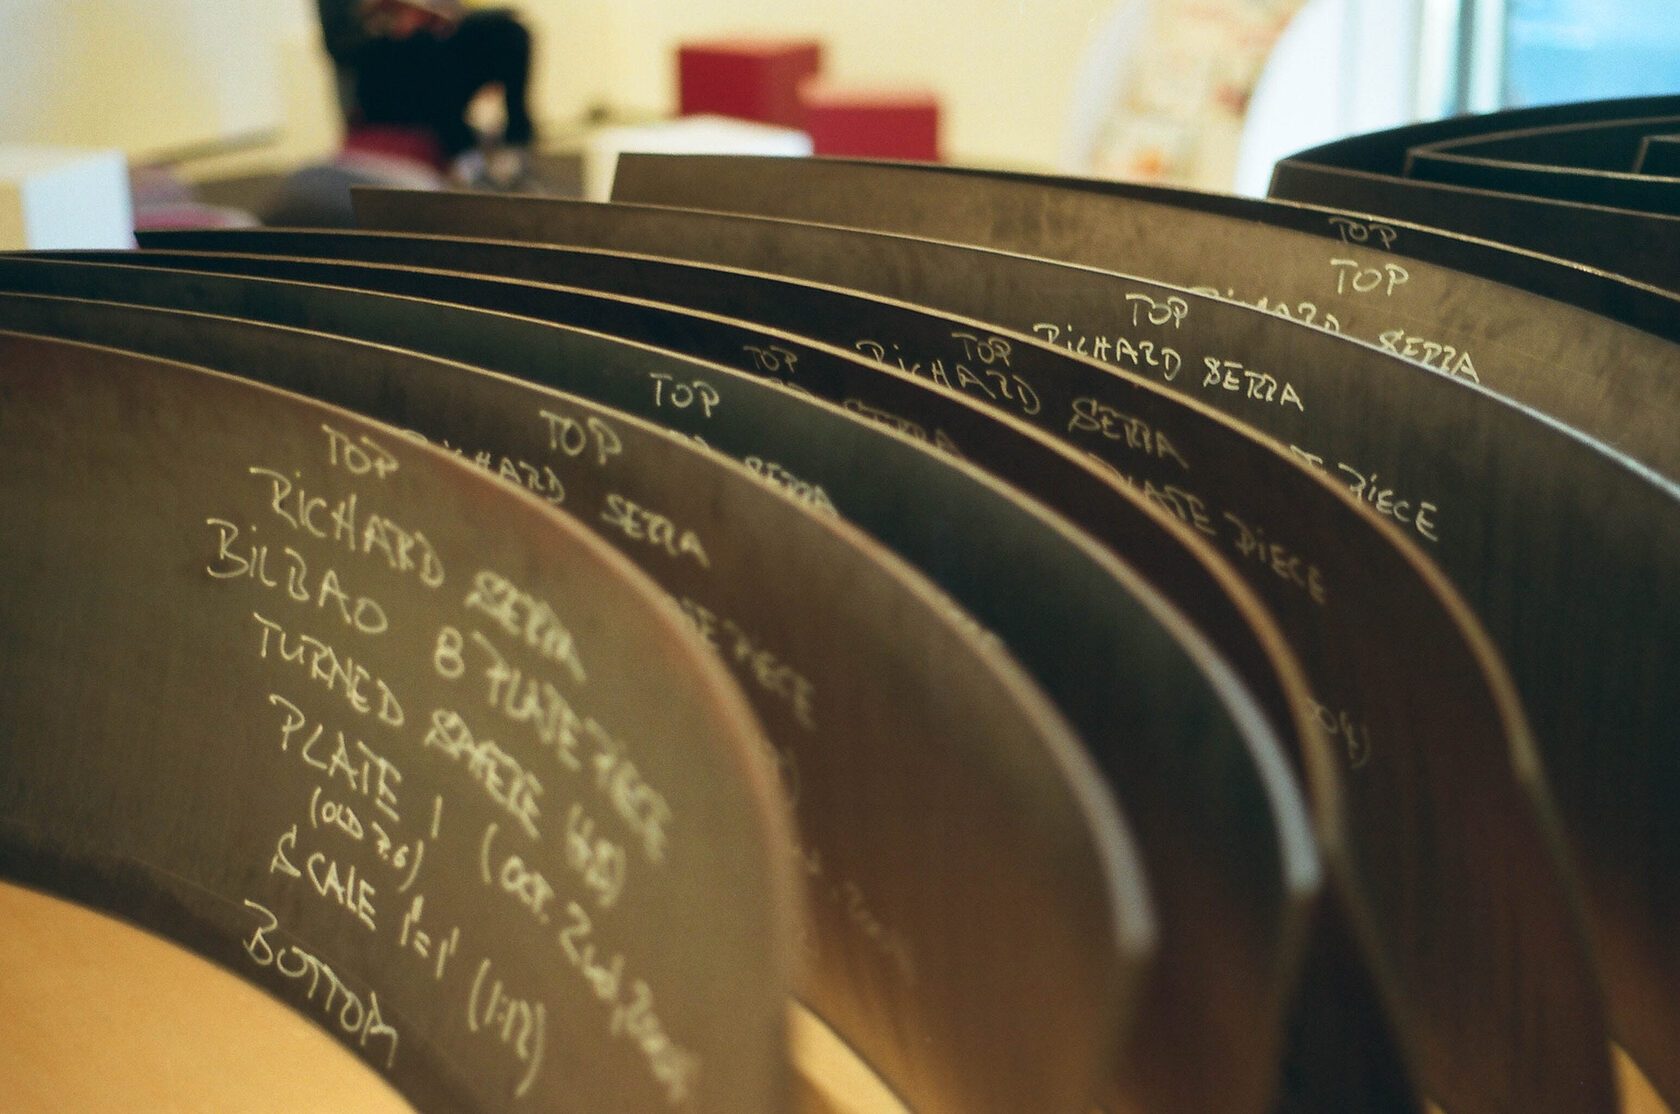 TOP
RICHARD SERRA
BILBAO 8 PLATE PIECE
TURNED SPHERE
PLATE 1 (OCT. 2nd
(OLD 7.6)
SCALE 1"=1' (1:12)
BOTTOM
TOP
RICHARD SERRA
PIECE
TOP
SERRA
TOP
SERRA
TOP
RICHARD SERRA
PLATE PIECE
TOP
RICHARD SERRA
PIECE
TOP
RICHARD SERRA
TOP